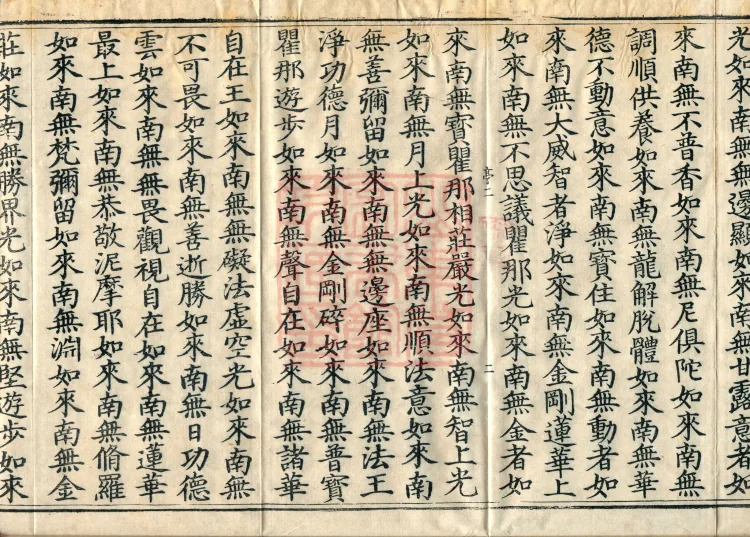 光如來南無無邊顯如來南無甘露意者如
來南無不普香如來南無尼俱陀如來南無
調順供養如來南無龍解脫體如來南無華
德不動意如來南無寶住如來南無動者如
來南無大威智者淨如來南無金剛蓮華上
如來南無不思議瞿那光如來南無金者如
來南無寶瞿那相莊嚴光如來南無智上光
如來南無月上光如來南無順法意如來南
無善彌留如來南無無邊座如來南無法王
淨功德月如來南無金剛碎如來南無普寶
瞿那遊步如來南無聲自在如來南無諸華
自在王如來南無無礙法虛空光如來南無
不可畏如來南無善逝勝如來南無日功德
雲如來南無無畏觀視自在如來南無蓮華
最上如來南無恭敬泥摩耶如來南無脩羅
如來南無梵彌留如來南無淵如來南無金
莊如來南無勝界光如來南無堅遊步如來